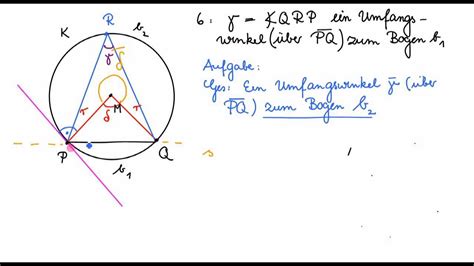 K R b₂
γ δ̄
δ
r M r
P Q
b₁
G: γ = ∢QRP ein Umfangs-
winkel (über P̅Q̅) zum Bogen b₁
Aufgabe:
Ges: Ein Umfangswinkel γ̄ (über
P̅Q̅) zum Bogen b₂
s